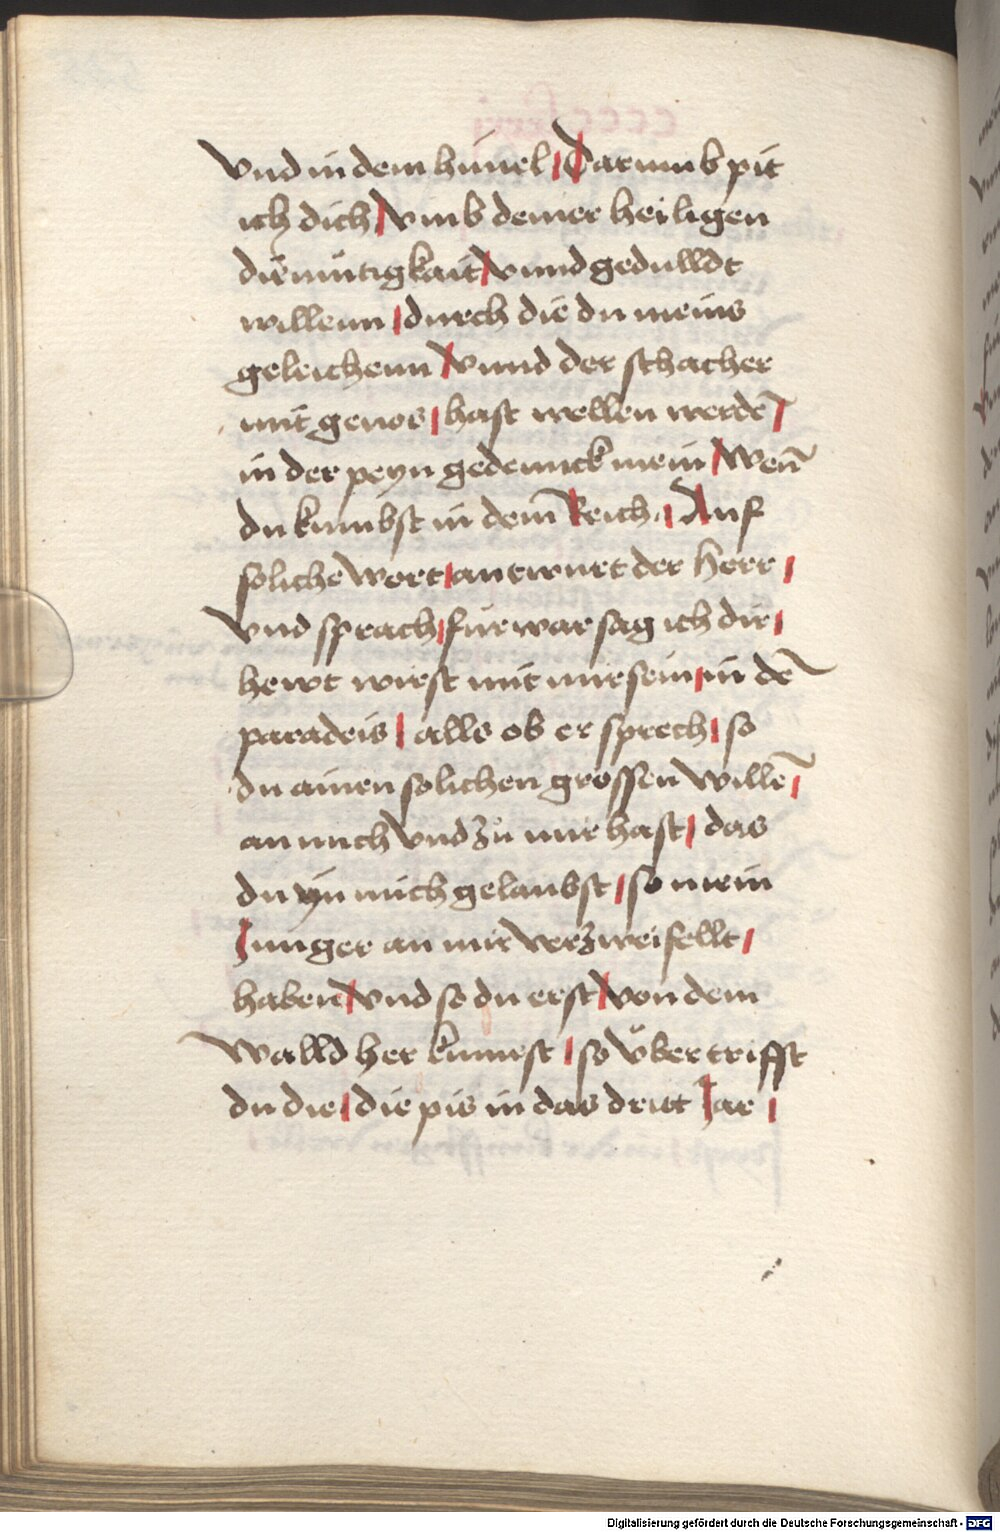 vnd in dem himel / Darumb pit
ich dich / vmb deiner heiligen
diemütigkait / vnnd gedulldt
willenn / durch die du meins
geleichenn / vnnd der schacher
mit genos / hast wellen werdē /
in der peyn gedennck mein / Wen̄
du kumbst in dem̄ Reich / Auf
soliche wort / antwurt der Herr /
vnd sprach / fürwar sag ich dir /
hewt wirst mit mir sein / in dē
paradeis / alls ob er sprech / so
du ainen solichen grossen willē /
an mich vnd zů mir hast / das
du yn mich gelaubst / so mein
Junger an mir verzweifellt /
haben / vnd so du erst / von dem
walld her kumest / so vͤbertrifft
du die / die pis in das dritt Jar /
Digitalisierung gefördert durch die Deutsche Forschungsgemeinschaft - DFG